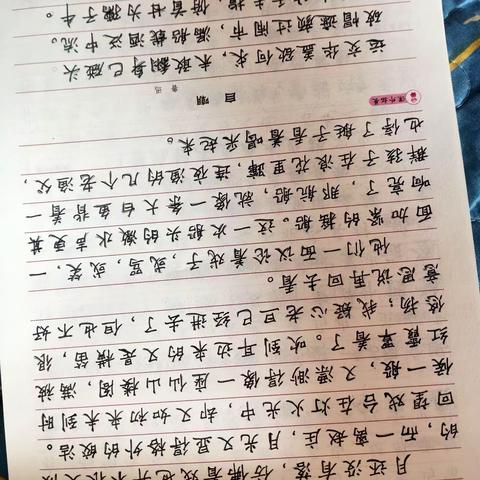 月还没有落，仿佛看戏也并不很久似
的，而一离赵庄，月光又显得格外的皎洁。
回望戏台在灯火光中，却又如初来未到时
候一般，又漂渺得像一座仙山楼阁，满被
红霞罩着了。吹到耳边来的又是横笛，很
悠扬；我疑心老旦已经进去了，但也不好
意思说再回去看。
他们一面议论着戏子，或骂，或笑，一
面加紧的摇船。这一次船头的激水声更其
响亮了，那航船，就像一条大白鱼背着一
群孩子在浪花里蹿，连夜渔的几个老渔父，
也停了艇子看着喝采起来。
自嘲
鲁迅
运交华盖欲何求，未敢翻身已碰头
破帽遮颜过闹市，漏船载酒泛中流。
夫指，俯首甘为孺子牛。